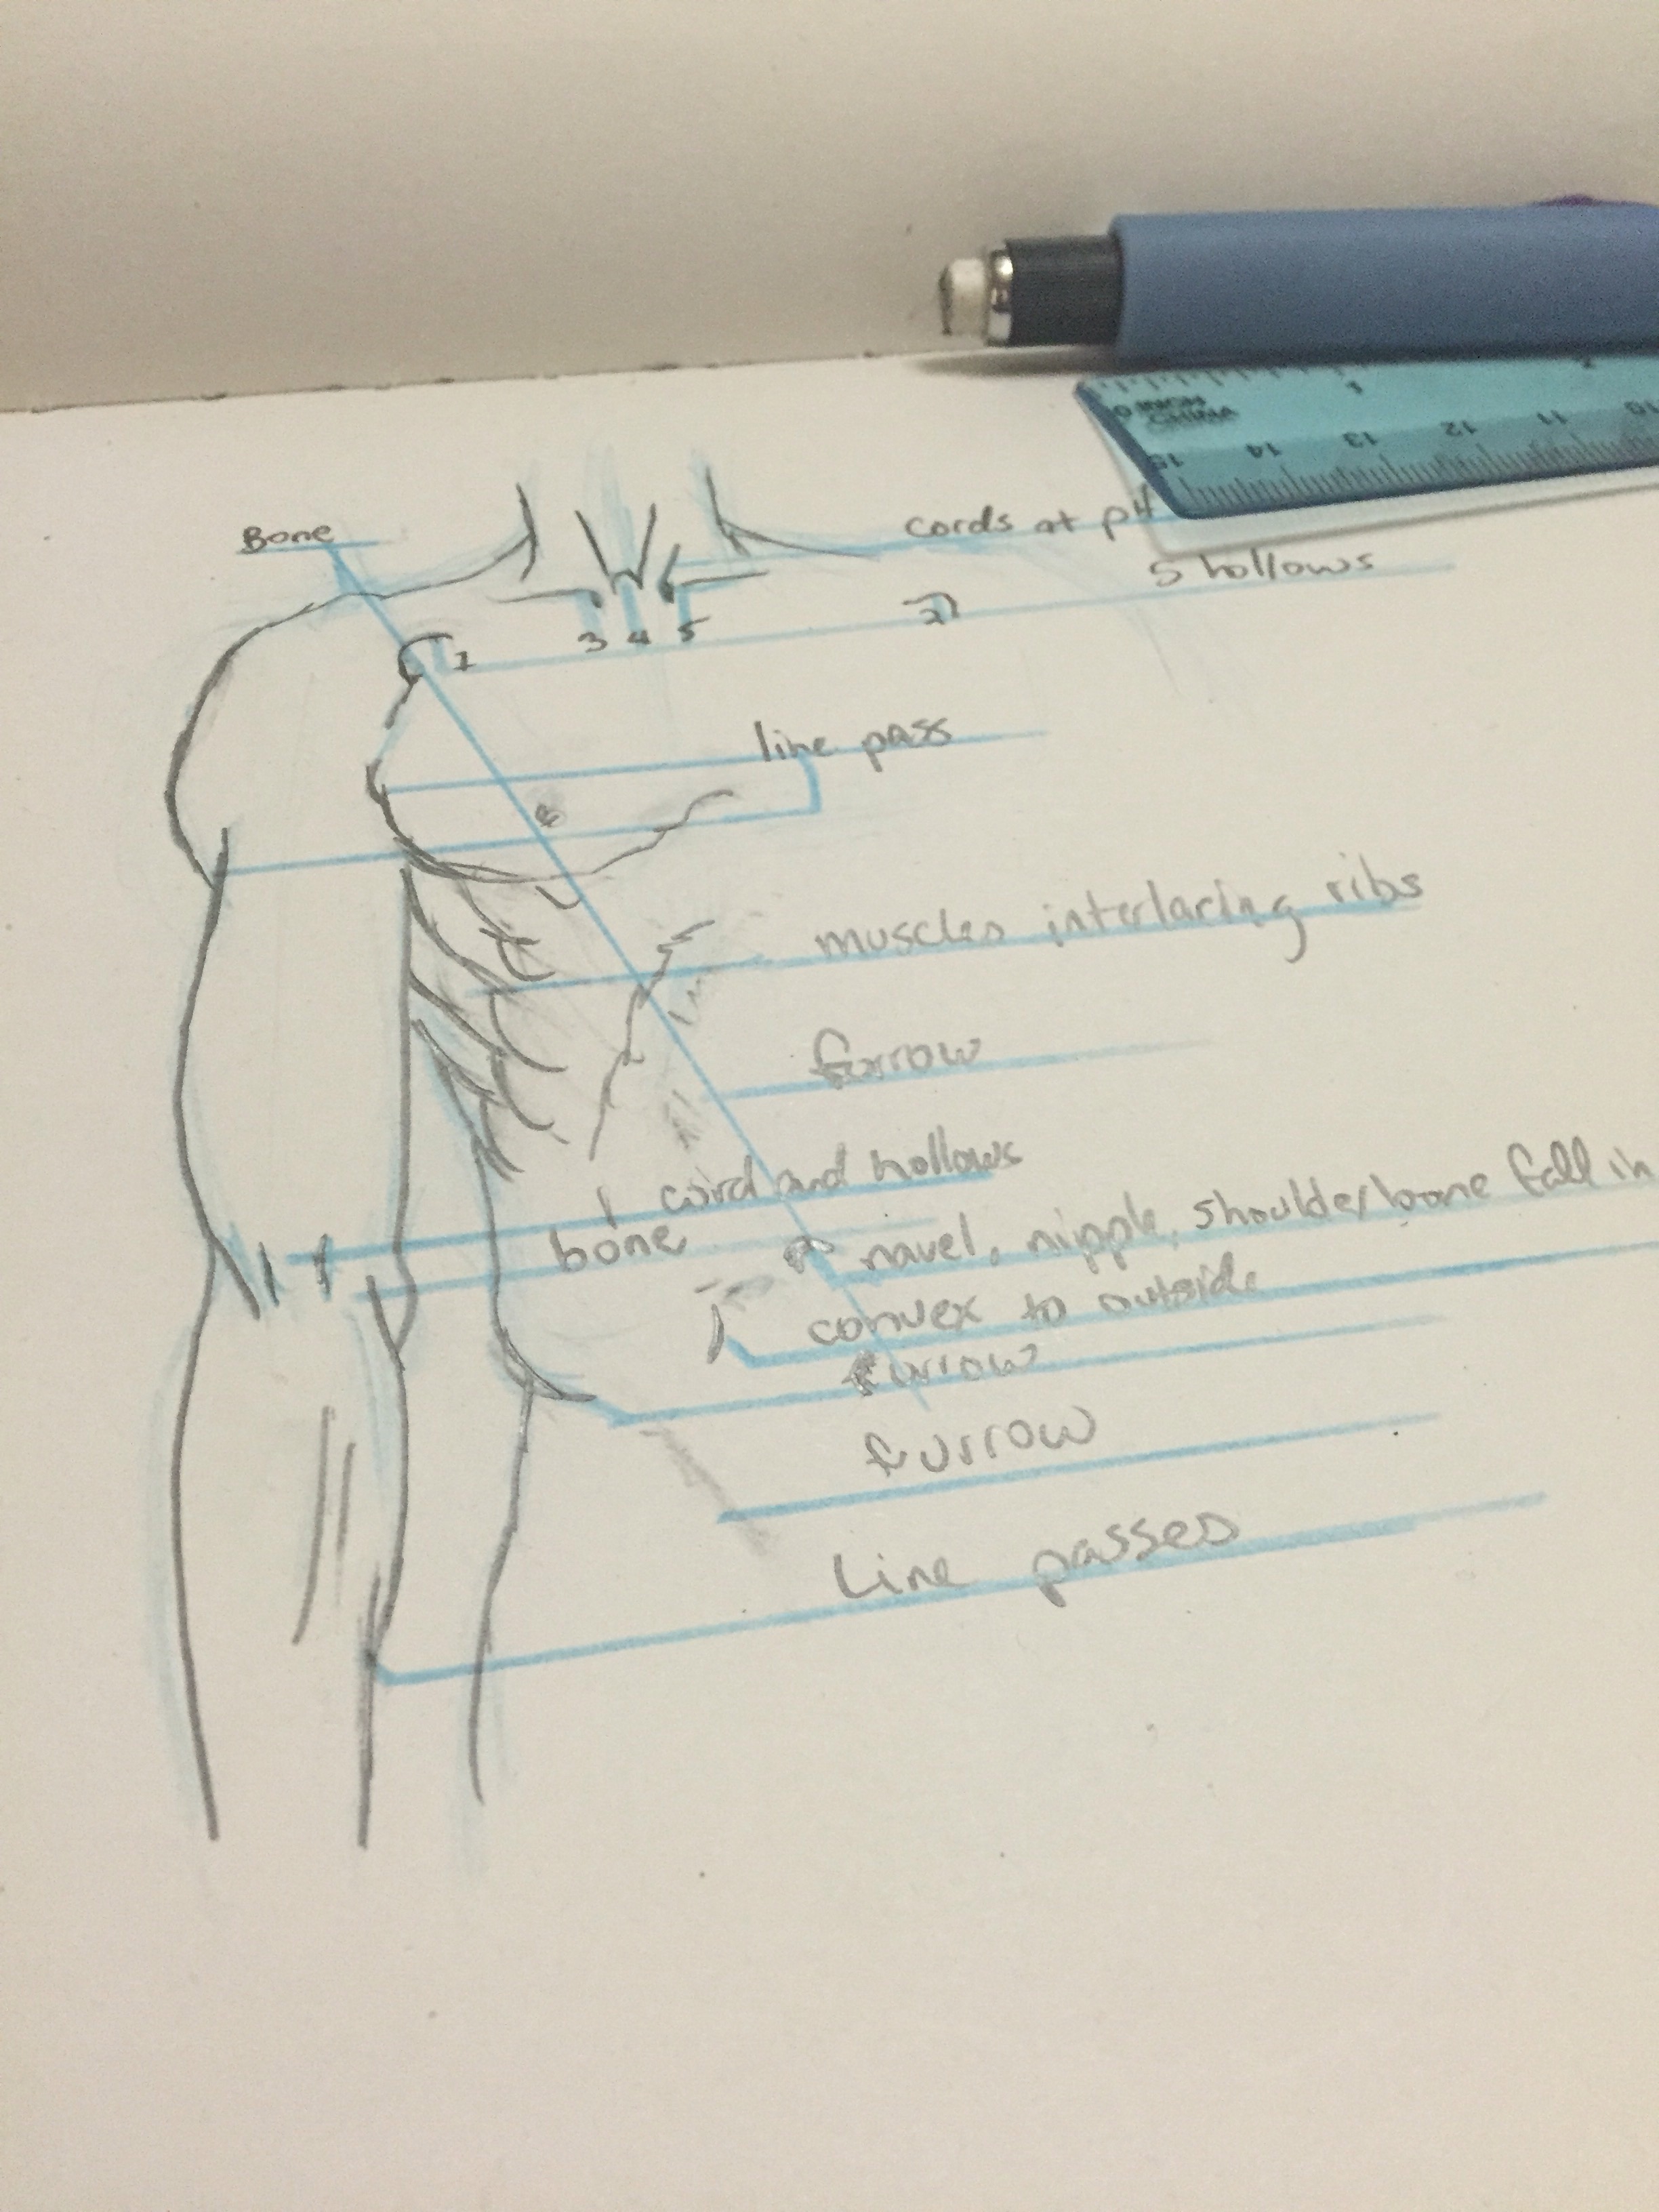 Bone
cords at pit
5 hollows
1
2
3 4 5
line pass
muscles interlacing ribs
furrow
cord and hollows
bone
navel, nipple, shoulder bone fall in
convex to outside
furrow
furrow
Line passes
CHINA
15 14 13 12 11 10
0 1 2